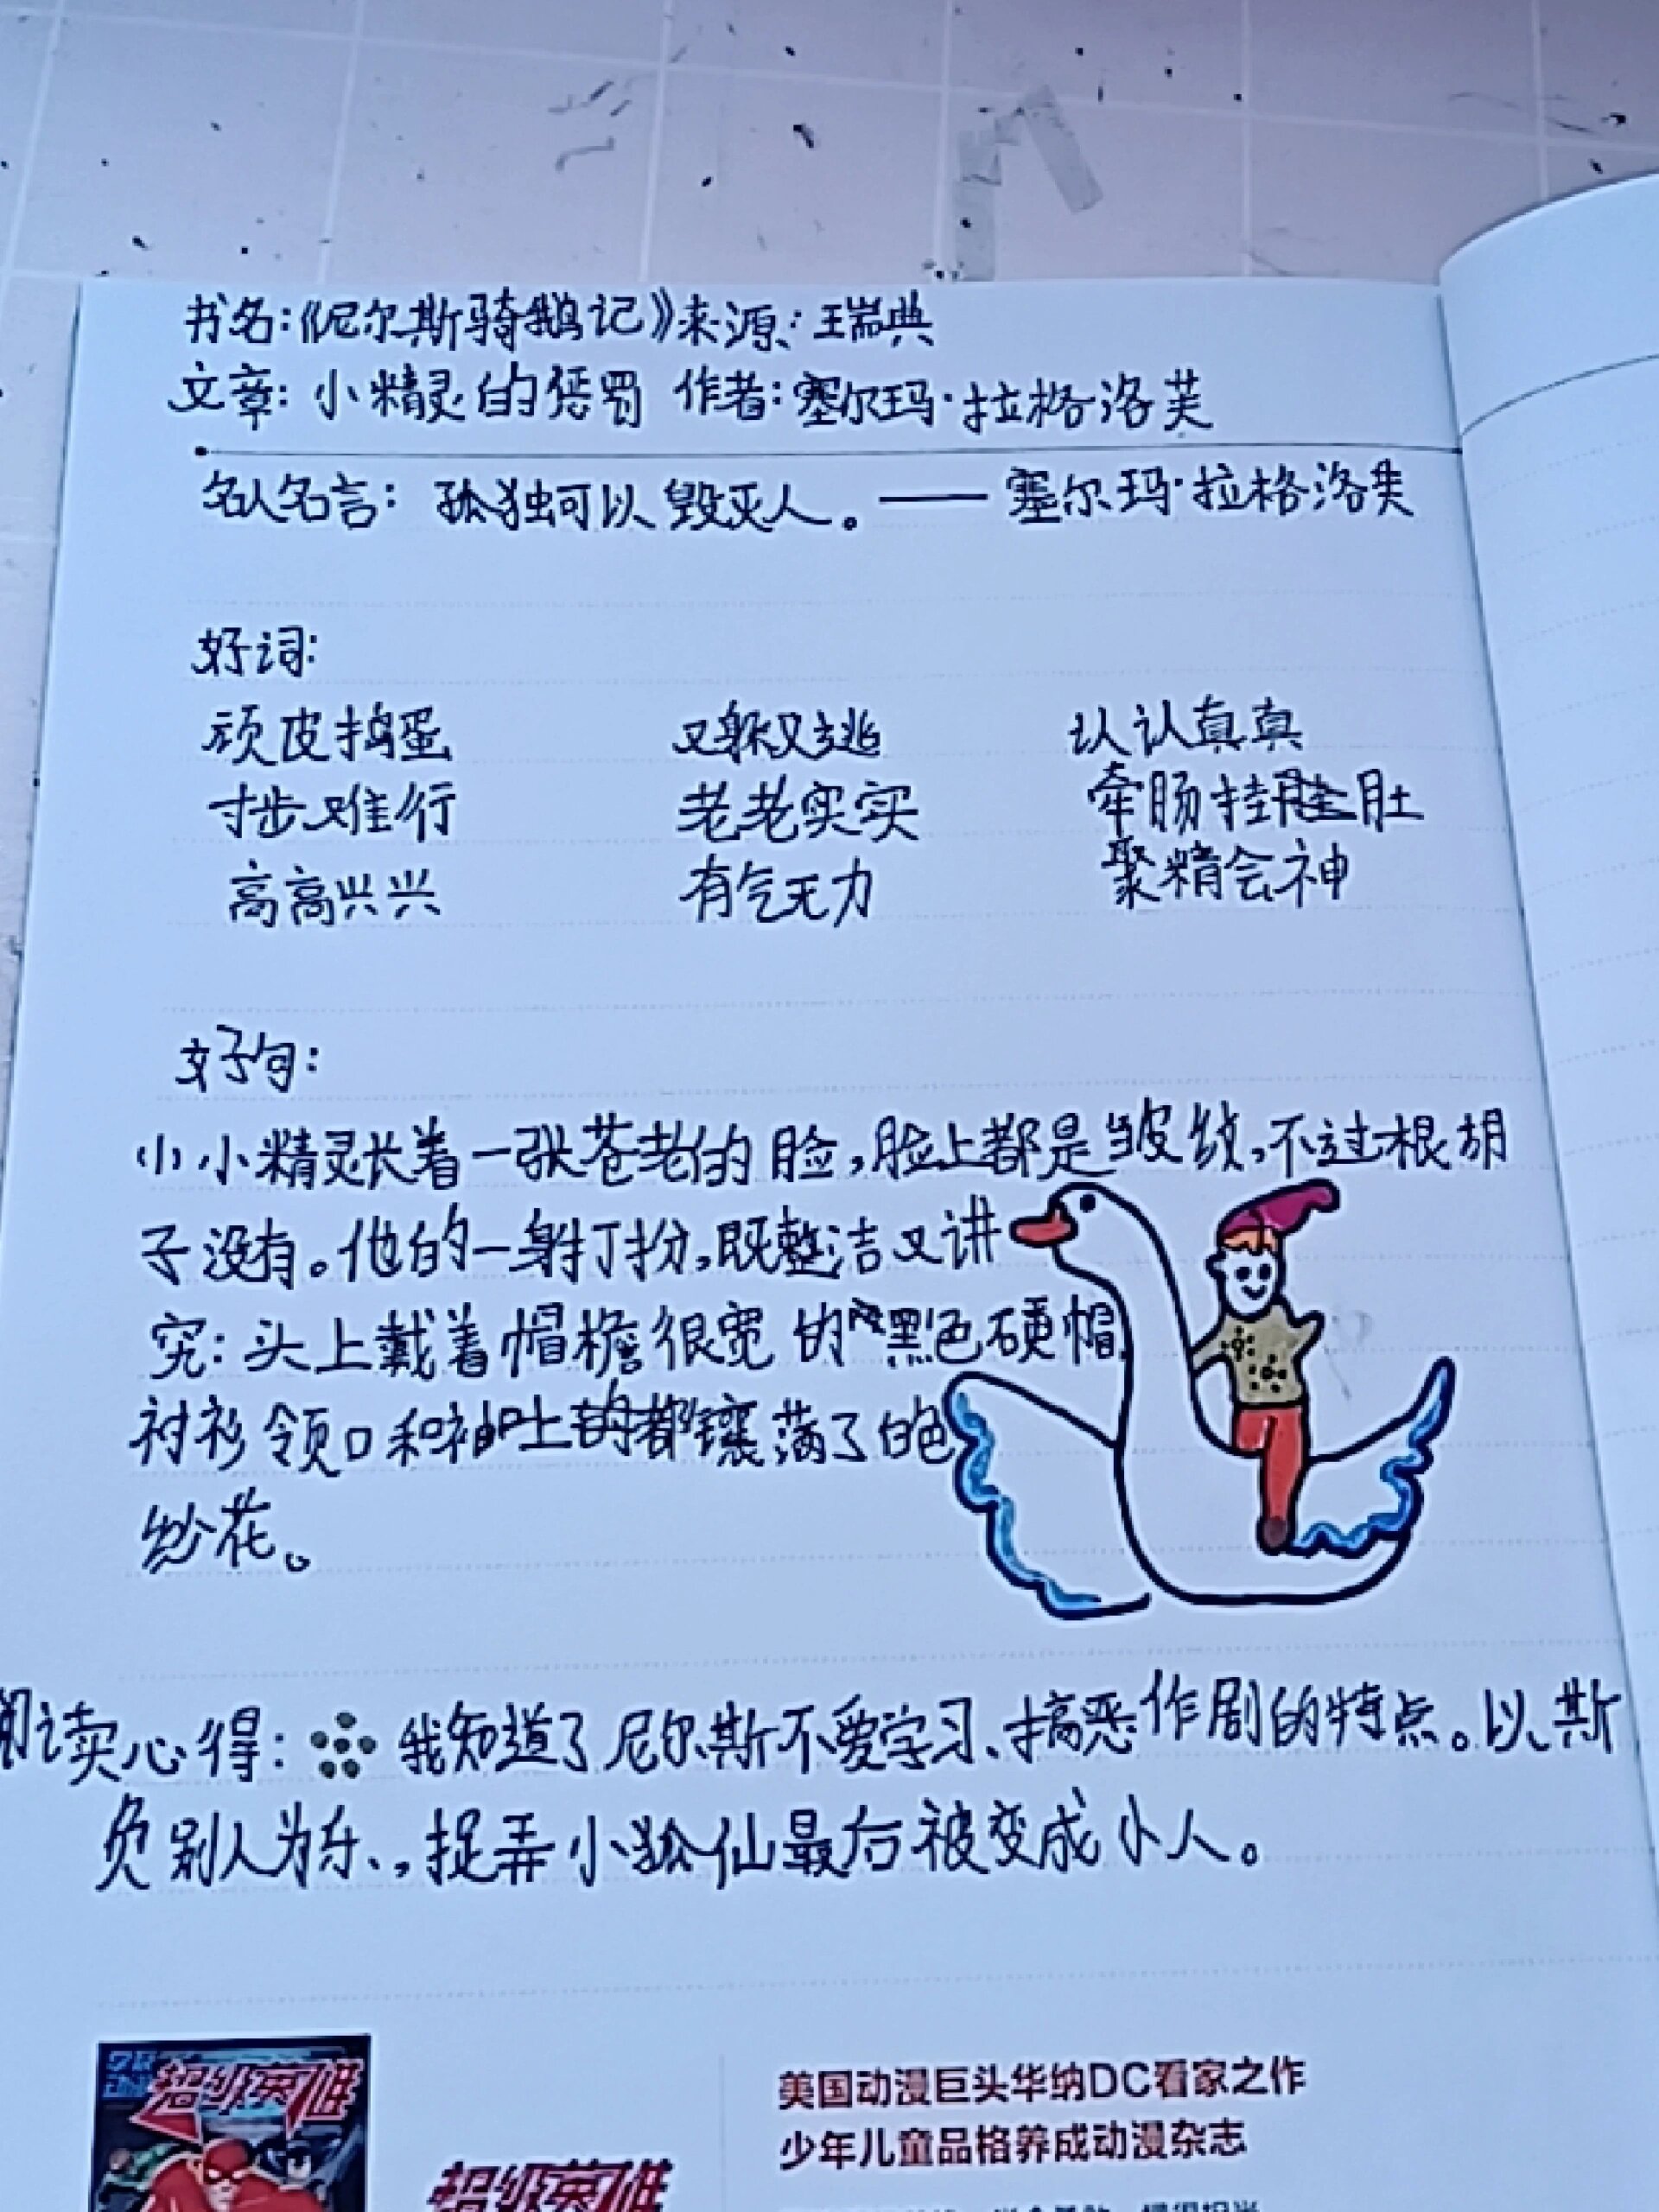 书名:《尼尔斯骑鹅记》来源:瑞典
文章:小精灵的惩罚 作者:塞尔玛·拉格洛芙
名人名言:孤独可以毁灭人。——塞尔玛·拉格洛芙
好词:
顽皮捣蛋 又躲又逃 认认真真
寸步难行 老老实实 牵肠挂肚
高高兴兴 有气无力 聚精会神
好句:
小小精灵长着一张苍老的脸,脸上都是皱纹,不过根胡
子没有。他的一身打扮,既整洁又讲
究:头上戴着帽檐很宽的黑色硬帽,
衬衫领口和袖口上都镶满了白色
纱花。
阅读心得: 我知道了尼尔斯不爱学习、搞恶作剧的特点。以斯
负别人为乐、,捉弄小狐仙最后被变成小人。
超级英雄
超级英雄
美国动漫巨头华纳DC看家之作
少年儿童品格养成动漫杂志